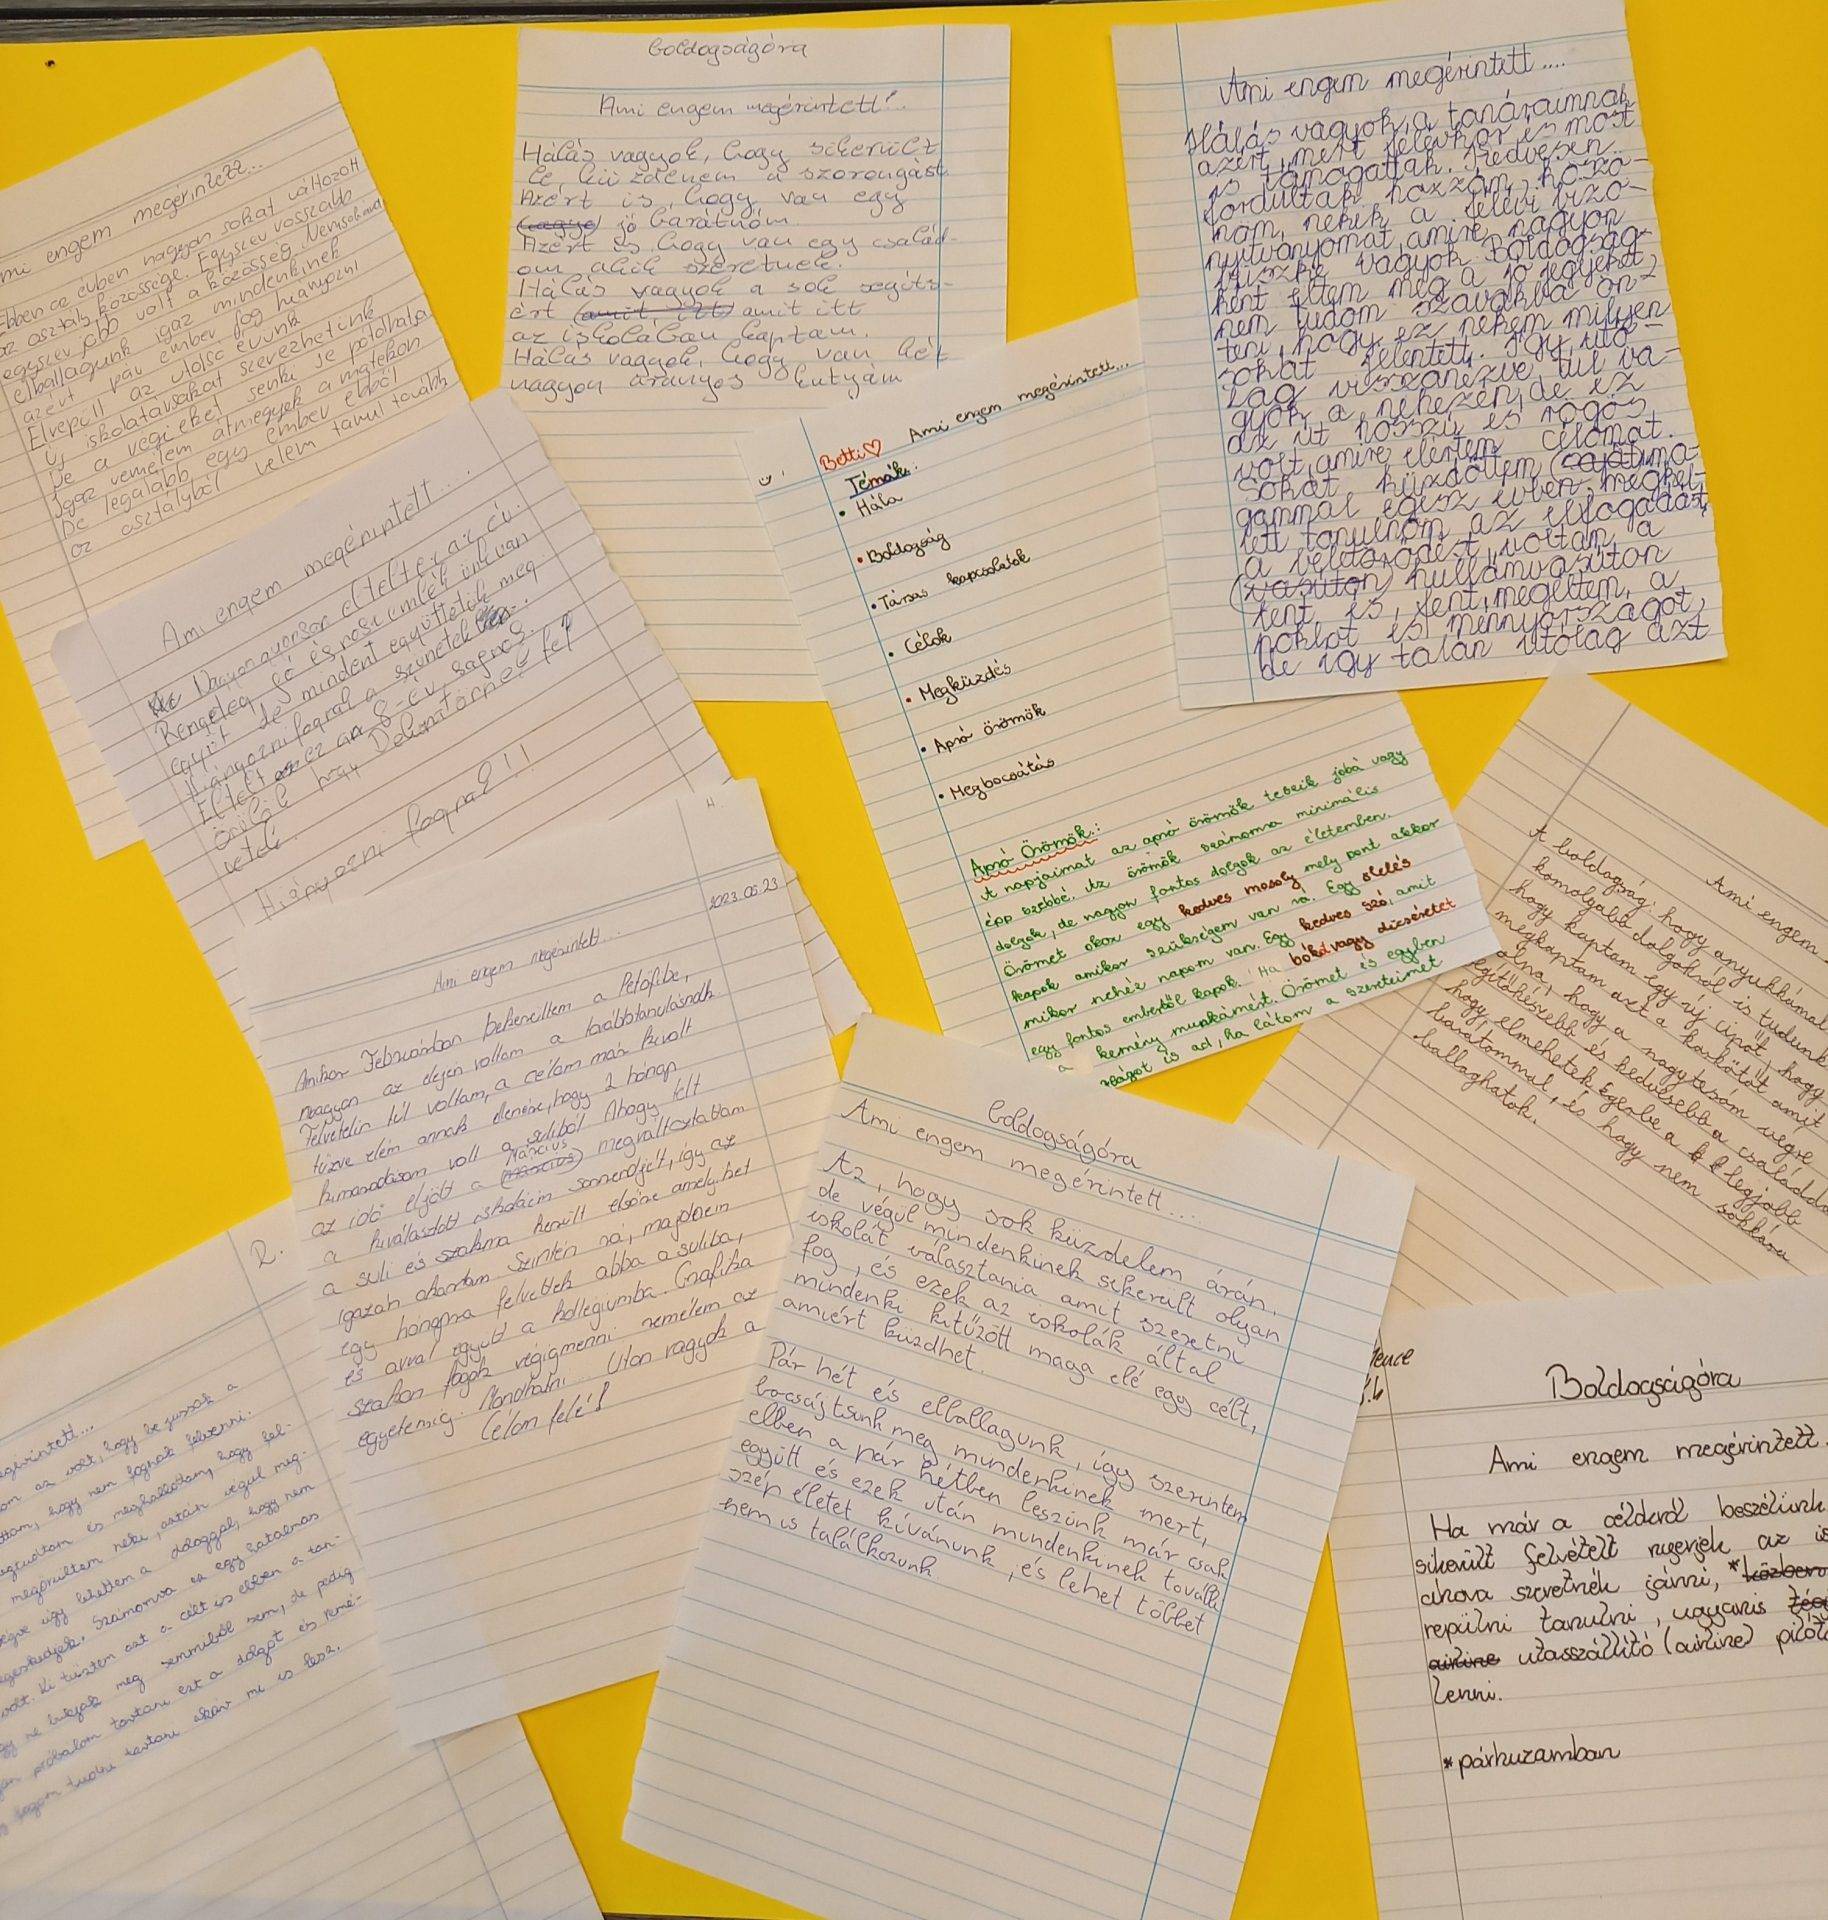 Ami engem megérintett...
Ebben az évben nagyon sokat változott
az osztály közössége. Egyszer rosszabb
egyszer jobb volt a közösség. Nemsokára
elballagunk igaz mindenkinek
azért pár ember fog hiányozni
Elrepült az utolsó évünk
Új iskolatársakat szerezhetünk
De a régieket senki se pótolhatja
Igaz remélem átmegyek a matekon
De legalább egy ember ebből
az osztályból velem tanul tovább
boldogságóra
Ami engem megérintett!...
Hálás vagyok, hogy sikerült
le küzdenem a szorongást.
Azért is, hogy van egy
jó barátnőm.
Azért is hogy van egy család-
om akik szeretnek.
Hálás vagyok a sok segíts-
ért (amit itt) amit itt
az iskolában kaptam.
Hálás vagyok, hogy van két
nagyon aranyos kutyám
Ami engem megérintett....
Hálás vagyok a tanáraimnak
azért, mert félévkor és most
is támogattak. Kedvesen
fordultak hozzám, köszö-
nöm nekik a félévi bizo-
nyítványomat, amire nagyon
büszke vagyok. Boldogság-
ként éltem meg a jó jegyeket,
nem tudom szavakba ön-
teni, hogy ez nekem milyen
sokat jelentett. Így, utó-
lag visszanézve, túl va-
gyok a nehezén, de ez
az út hosszú és rögös
volt, amire elértem célomat.
Sokat küzdöttem (saját) ma-
gammal egész évben, meg kel-
lett tanulnom az elfogadást,
a
voltam a
(vasúton) hullámvasúton
lent és fent, megéltem a
poklot és mennyországot,
de így talán utólag azt
Ami engem megérintett...
Nagyon gyorsan eltelt ez az év.
Rengeteg jó és rossz emlék
van
együtt de mindent együtt éltük meg
Hiányozni fognak a szünetek
Eltelt ez a 8. év sajnos.
Örülök hogy
vetél.
Hiányozni fognak!!!
Betti♡ Ami engem megérintett...
Témák:
• Hála
• Boldogság
• Társas kapcsolatok
• Célok
• Megküzdés
• Apró örömök
• Megbocsátás
Apró Örömök:
A napjaimat az apró örömök teszik jobbá vagy
épp szebbé. Az örömök számomra minimális
dolgok, de nagyon fontos dolgok az életemben.
Örömet okoz egy kedves mosoly mely pont akkor
kapok amikor szükségem van rá. Egy ölelés
mikor nehéz napom van. Egy kedves szó, amit
egy fontos embertől kapok. Ha bókot vagy dicséretet
a kemény munkámért. Örömet és egyben
ságot is ad, ha látom a szeretteimet
4.
2023.05.23
Ami engem megérintett...
Amikor Februárban bekerültem a Petőfibe,
nagyon az elején voltam a továbbtanulásnak
Felvételin túl voltam, a célom már ki volt
tűzve elém annak ellenére, hogy 2 hónap
kimaradásom volt a suliból. Ahogy telt
az idő eljött a (március) Március megváltoztattam
a kiválasztott iskoláim sorrendjét, így az
a suli és szakma került előre amelyiket
igazán akartam. Szintén rá, majdnem
egy hónapra felvettek abba a suliba,
és avval együtt a kollégiumba. Grafika
szakon fogok végigmenni remélem az
egyetemig. Mondhatni... Úton vagyok a
Célom felé!
Ami engem
A boldogság: hogy anyukkámal
komolyabb dolgokról is tudunk
hogy kaptam egy új cipőt, hogy
megkaptam azt a karkötőt amit
volna, hogy a nagytesóm végre
segítőkészebb és kedvesebb a családdal
hogy elmehetek Egerbe a legjobb
barátommal, és hogy nem sokkára
ballaghatok.
boldogságóra
Ami engem megérintett....
Az, hogy sok küzdelem árán,
de végül mindenkinek sikerült olyan
iskolát választania amit szeretni
fog, és ezek az iskolák által
mindenki kitűzött maga elé egy célt,
amiért küzdhet.
Pár hét és elballagunk, így szerintem
bocsájtsunk meg mindenkinek mert,
ebben a pár hétben leszünk már csak
együtt és ezek után mindenkinek további
szép életet kívánunk, és lehet többet
nem is találkozunk.
2.
megérintett...
az volt, hogy bejussak a
hogy nem fognak felvenni.
megtudtam és meghallottam, hogy fel-
megörültem neki, aztán végül meg-
végre úgy lehettem a dologgal, hogy nem
Számomra ez egy hatalmas
volt. Ki tűztem ezt a célt is ebben a tan-
ne bukjak meg semmiből sem, de pedig
próbálom tartani ezt a dolgot és remé-
fogom tudni tartani akár mi is lesz.
Boldogságóra
Ami engem megérintett...
Ha már a célokról beszélünk
sikerült felvételt nyerjek az is
ahova szeretnék járni, *közben
repülni tanulni, ugyanis
airline utasszállító (airline) pilóta
lenni.
*párhuzamban